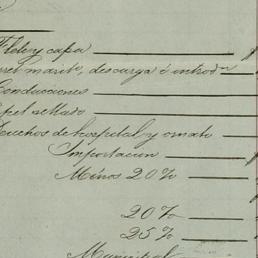 Flete y capa
marit°, descarga é introdon
Conducciones
pel sellado
chos de hospital y ornato
Importacion
Ménos 20 %
20 %
25 %
Municipal